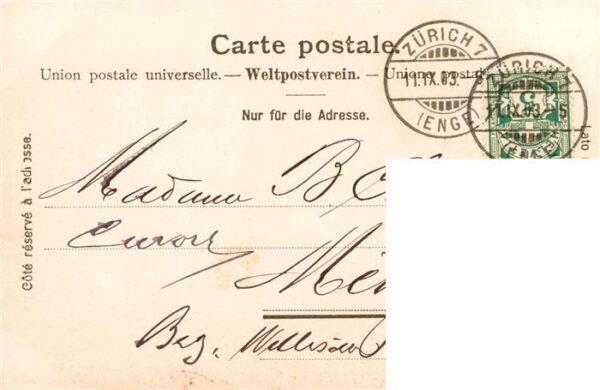 Carte postale.
Union postale universelle. — Weltpostverein. — Unione postal
Nur für die Adresse.
Côté réservé à l'adresse.
ZÜRICH 7
11.IX.03.
(ENGE)
ZÜRICH 7
11.IX.03.-5
5
Lato
Madame B
Mé
Bez. Willisau